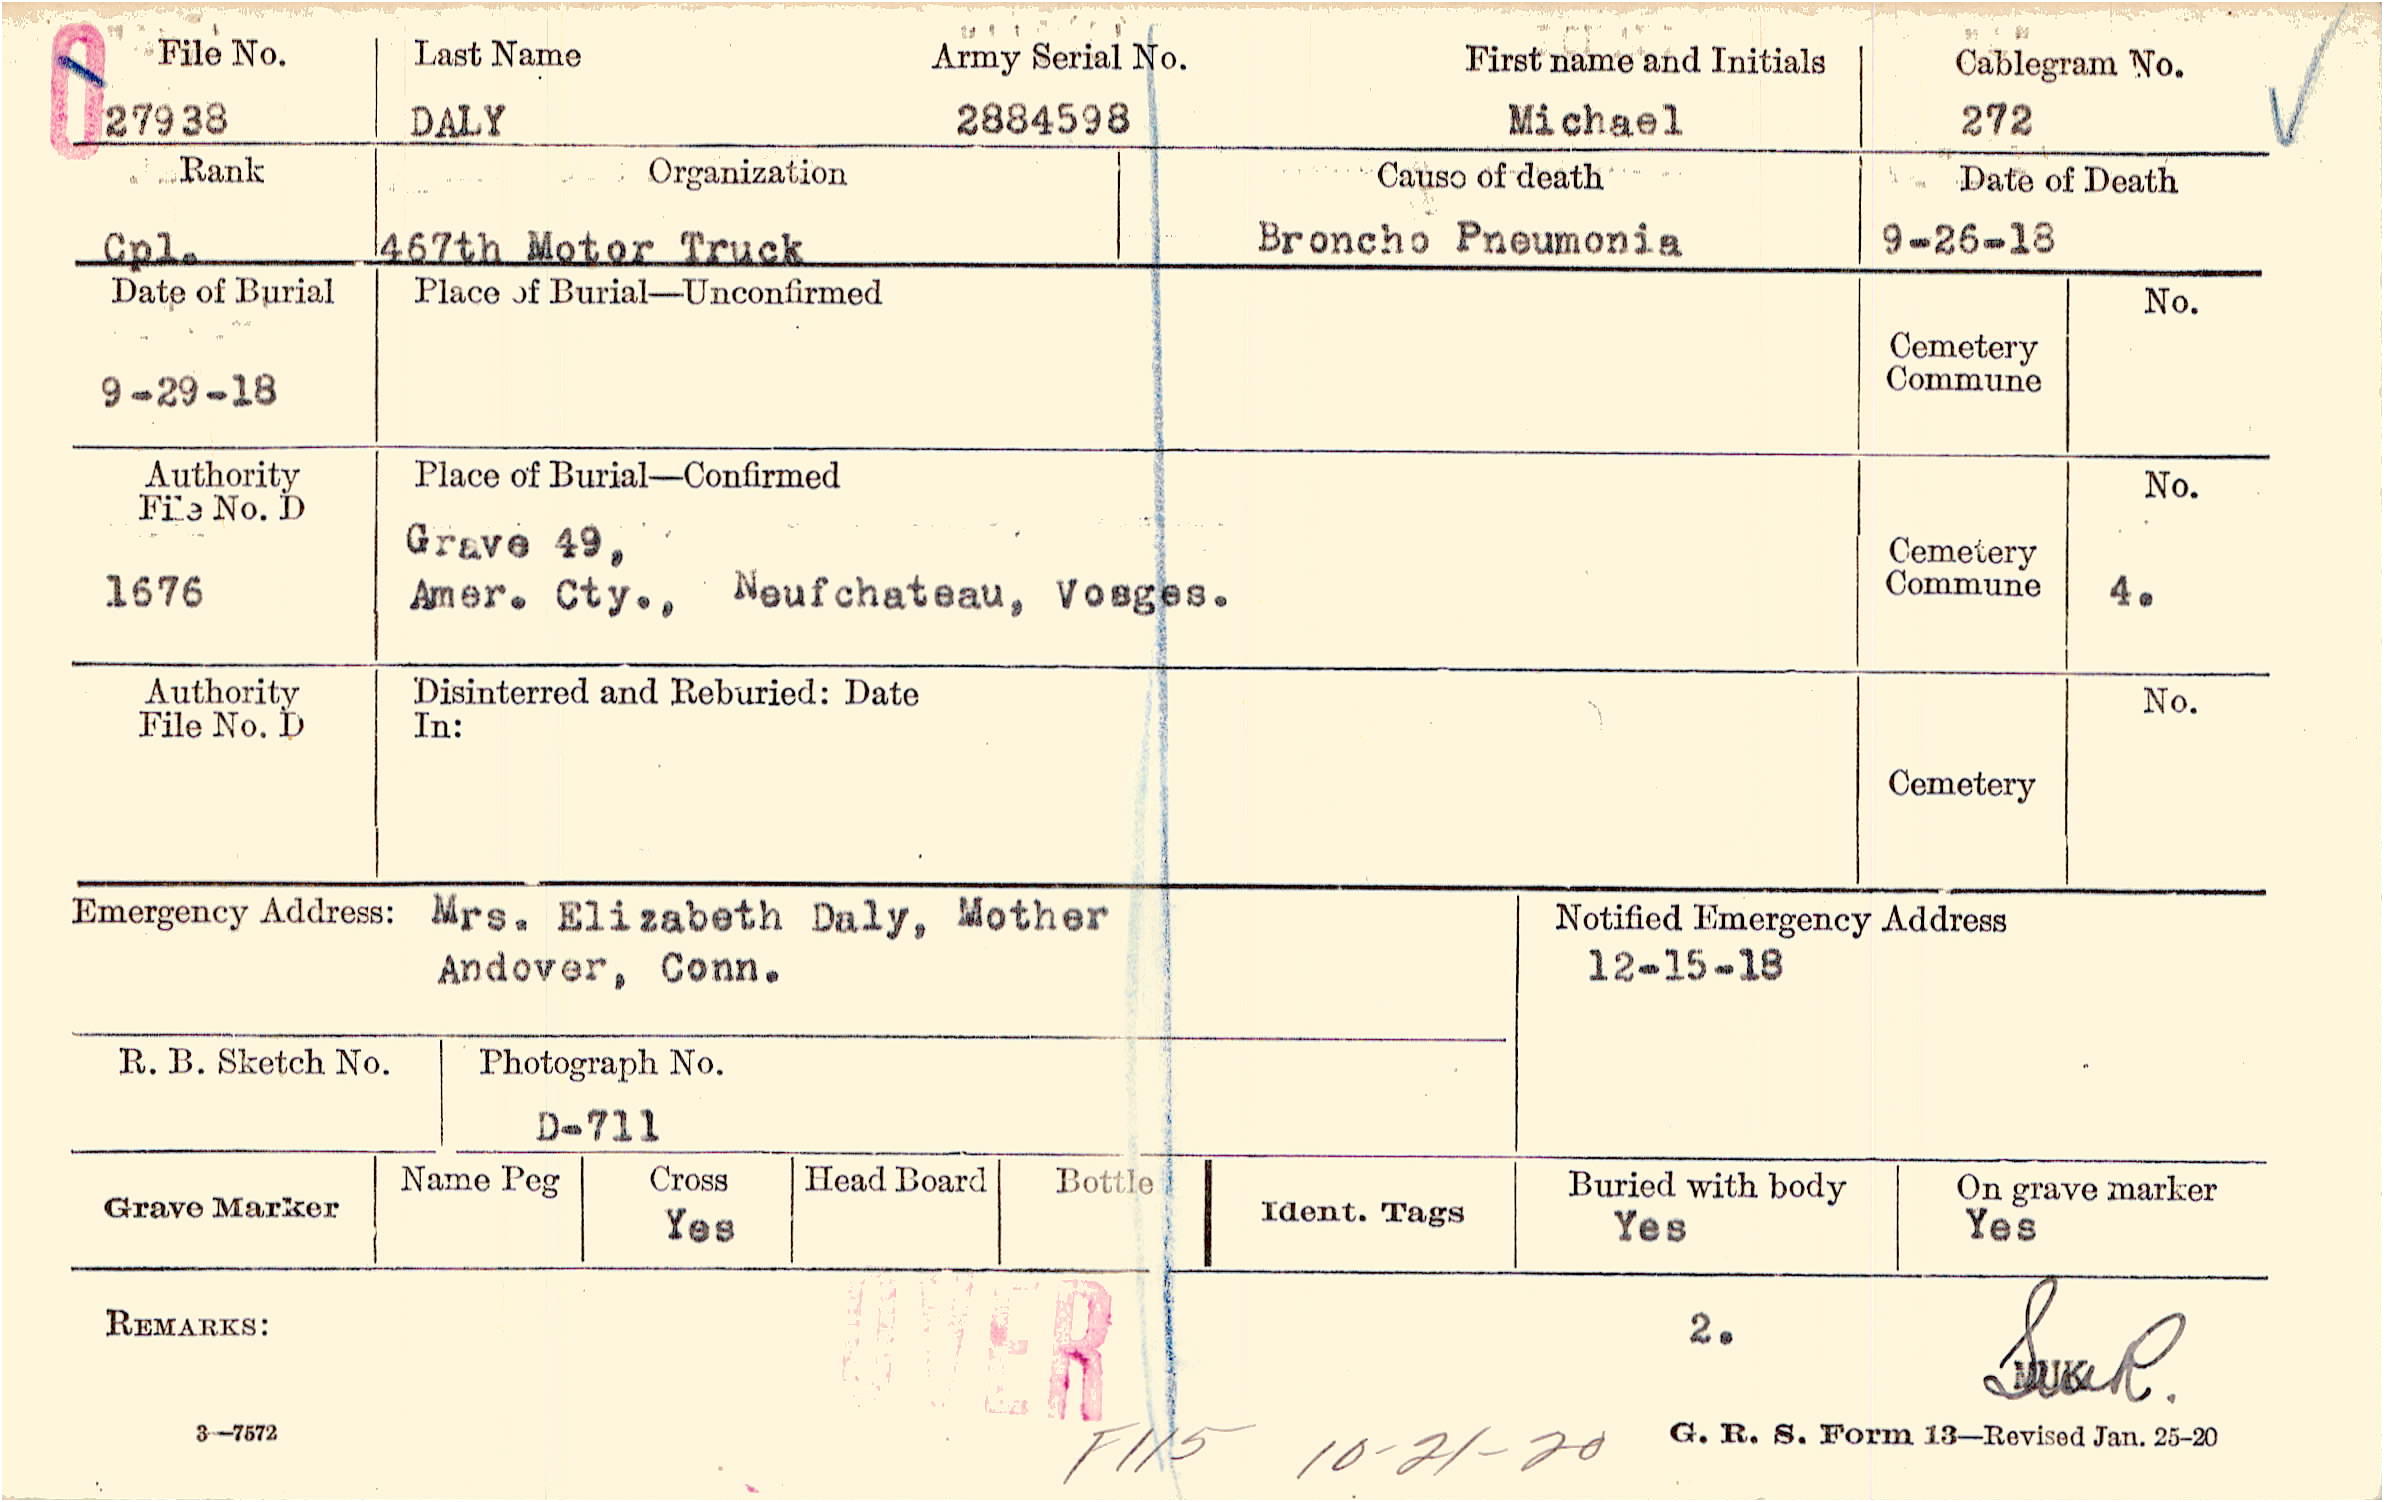 File No. Last Name Army Serial No. First name and Initials Cablegram No.
27938 DALY 2884598 Michael 272
Rank Organization Cause of death Date of Death
Cpl. 467th Motor Truck Broncho Pneumonia 9-26-18
Date of Burial Place of Burial—Unconfirmed No.
Cemetery
Commune
9-29-18
Authority Place of Burial—Confirmed No.
File No. D
Grave 49,
Cemetery
1676 Amer. Cty., Neufchateau, Vosges. Commune 4.
Authority Disinterred and Reburied: Date No.
File No. D In:
Cemetery
Emergency Address: Mrs. Elizabeth Daly, Mother Notified Emergency Address
Andover, Conn. 12-15-18
R. B. Sketch No. Photograph No.
D-711
Grave Marker Name Peg Cross Head Board Bottle Ident. Tags Buried with body On grave marker
Yes Yes Yes
REMARKS: OVER 2.
3—7572 G. R. S. Form 13—Revised Jan. 25-20
F115 10-21-20